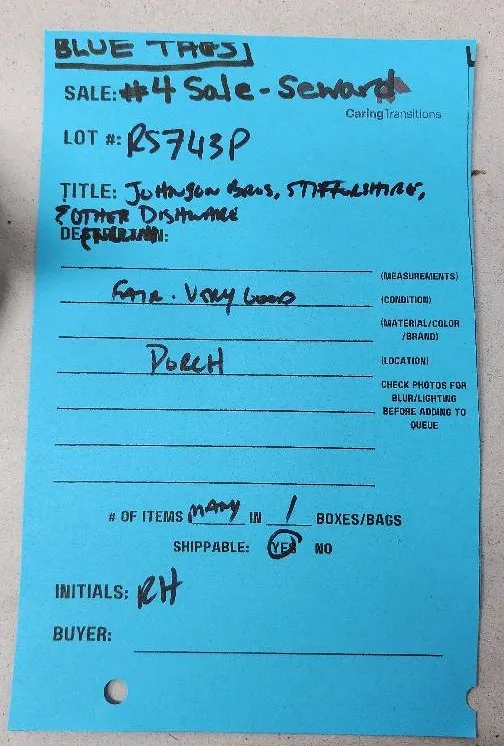 BLUE TAGS
SALE: #4 Sale - Seward
CaringTransitions
LOT #: RS743P
TITLE: JOHNSON BROS, STIFFORSHIRE,
& OTHER DISHWARE
(MEASUREMENTS)
FAIR - VERY GOOD (CONDITION)
(MATERIAL/COLOR
/BRAND)
PORCH (LOCATION)
CHECK PHOTOS FOR
BLUR/LIGHTING
BEFORE ADDING TO
QUEUE
# OF ITEMS MANY IN 1 BOXES/BAGS
SHIPPABLE: YES NO
INITIALS: RH
BUYER: